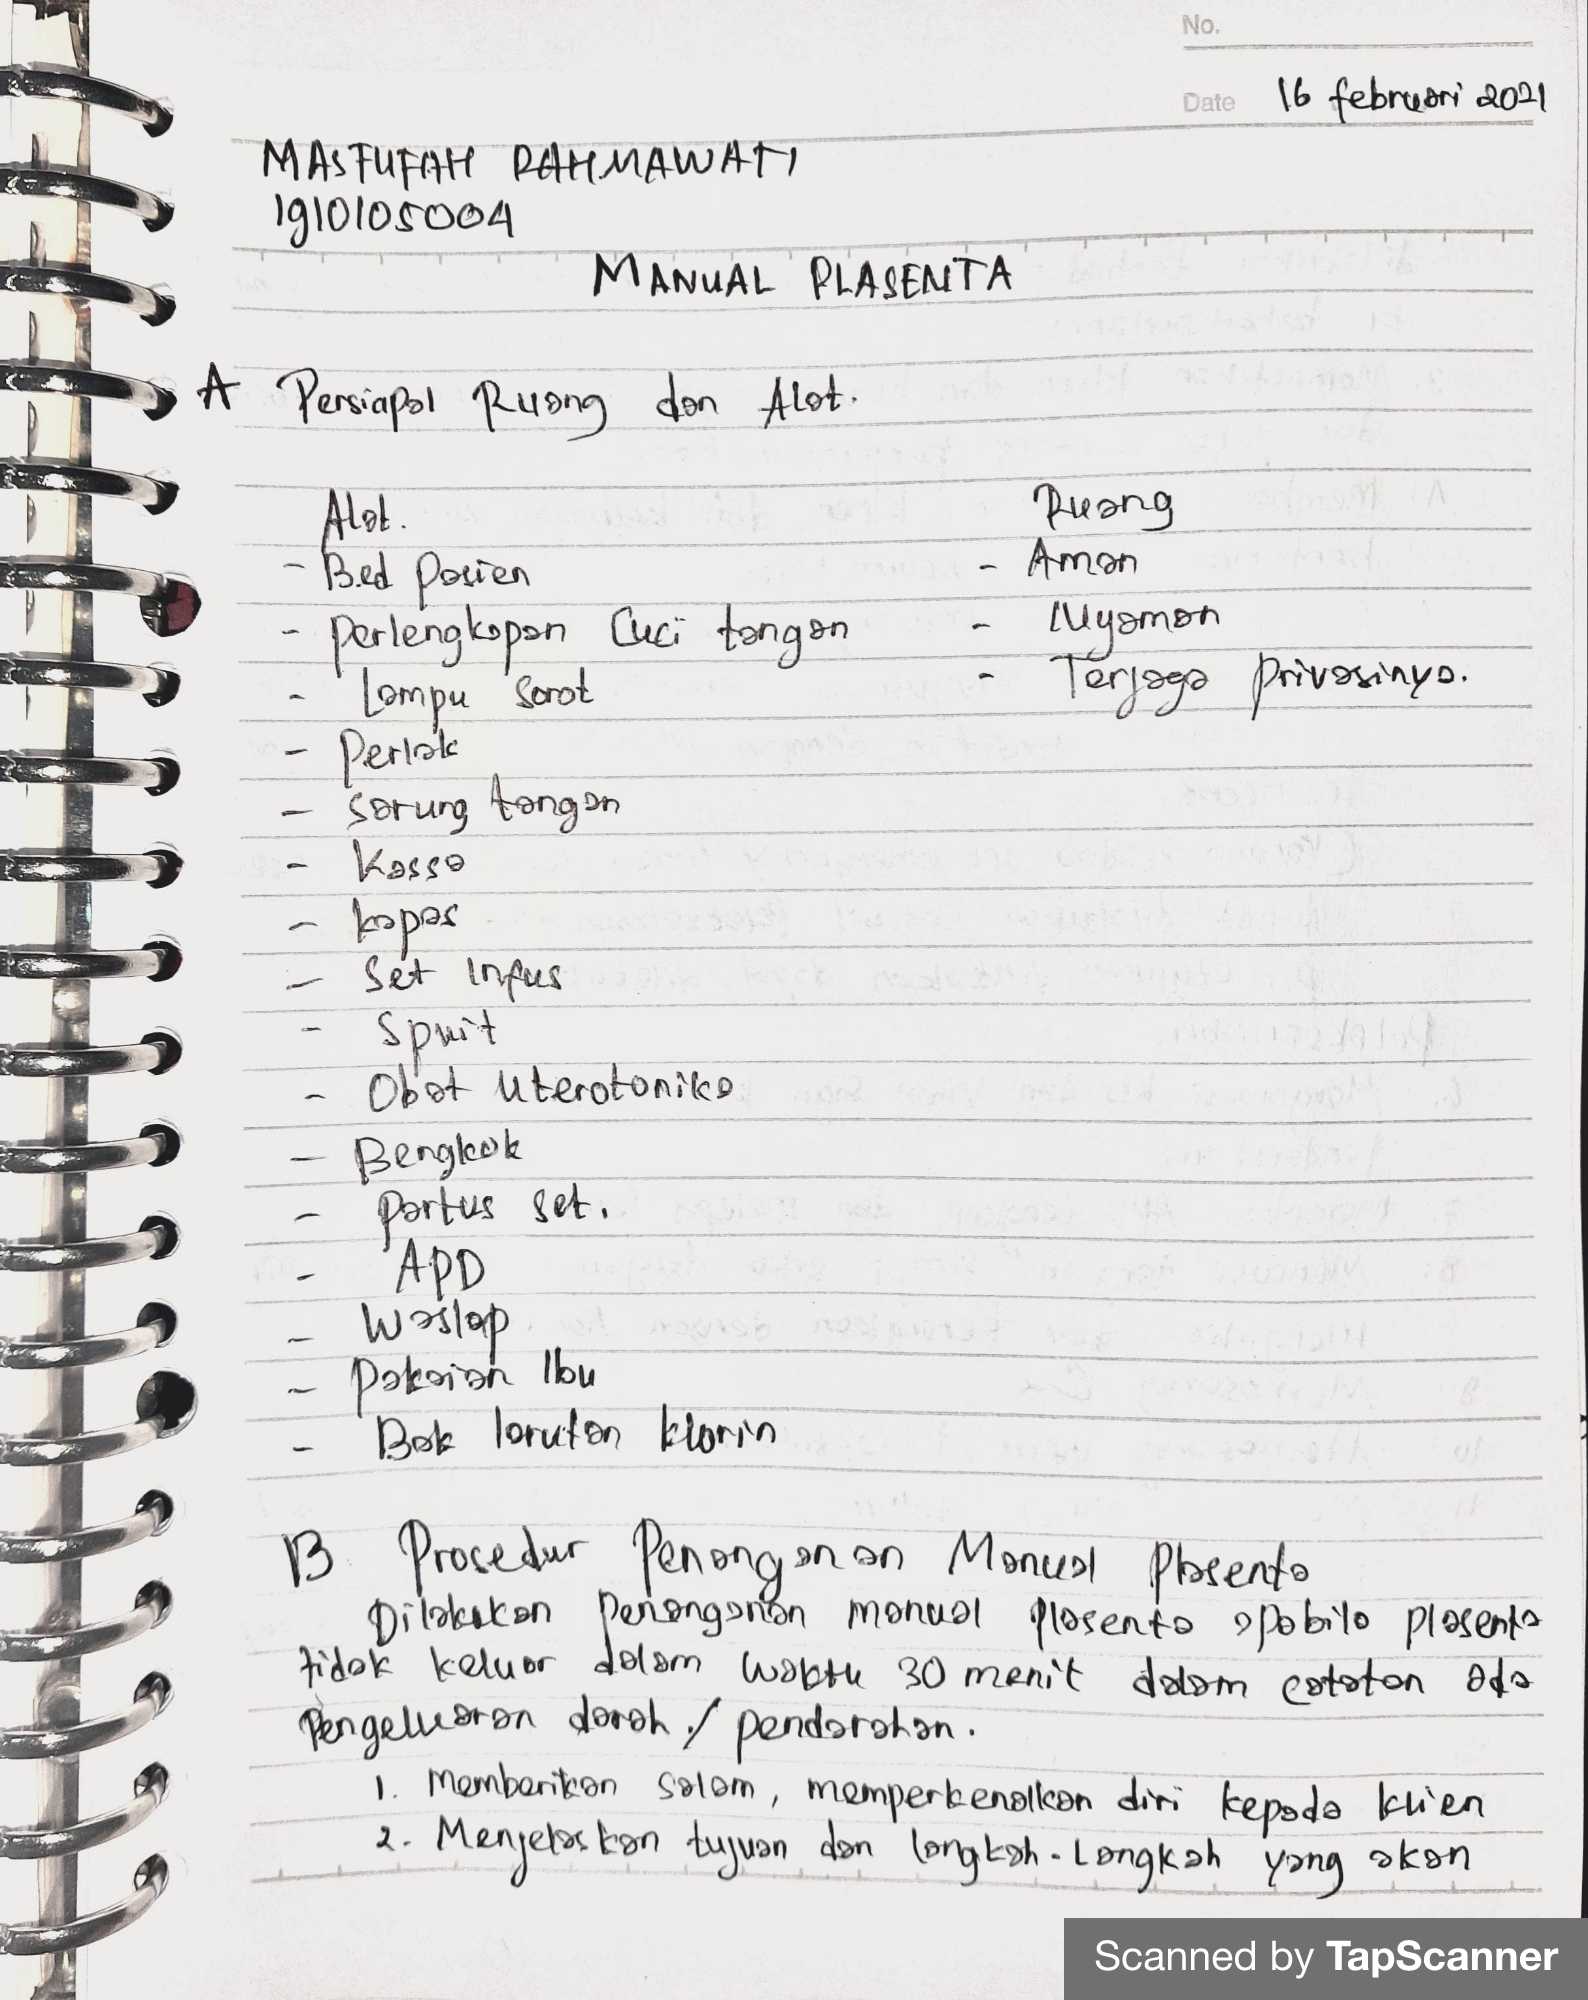 No.
Date 16 februari 2021
MASTUFAH RAHMAWATI
1910105004
MANUAL PLASENTA
A Persiapal Ruang dan Alat.
Alat.
- Bed Pasien
- Perlengkapan Cuci tangan
- Lampu Sorot
- Perlak
- Sarung tangan
- Kassa
- kapas
- Set Infus
- Spuit
- Obat Uterotonika
- Bengkok
- Partus set.
- APD
- Waslap
- Pakaian Ibu
- Bak larutan klorin
Ruang
- Aman
- Nyaman
- Terjaga Privasinya.
B Prosedur Penanganan Manual Plasenta
Dilakukan Penanganan manual plasenta apabila plasenta
tidak keluar dalam waktu 30 menit dalam catatan ada
Pengeluaran darah./ pendarahan.
1. Memberikan salam, memperkenalkan diri kepada klien
2. Menjelaskan tujuan dan langkah-Langkah yang akan
Scanned by TapScanner